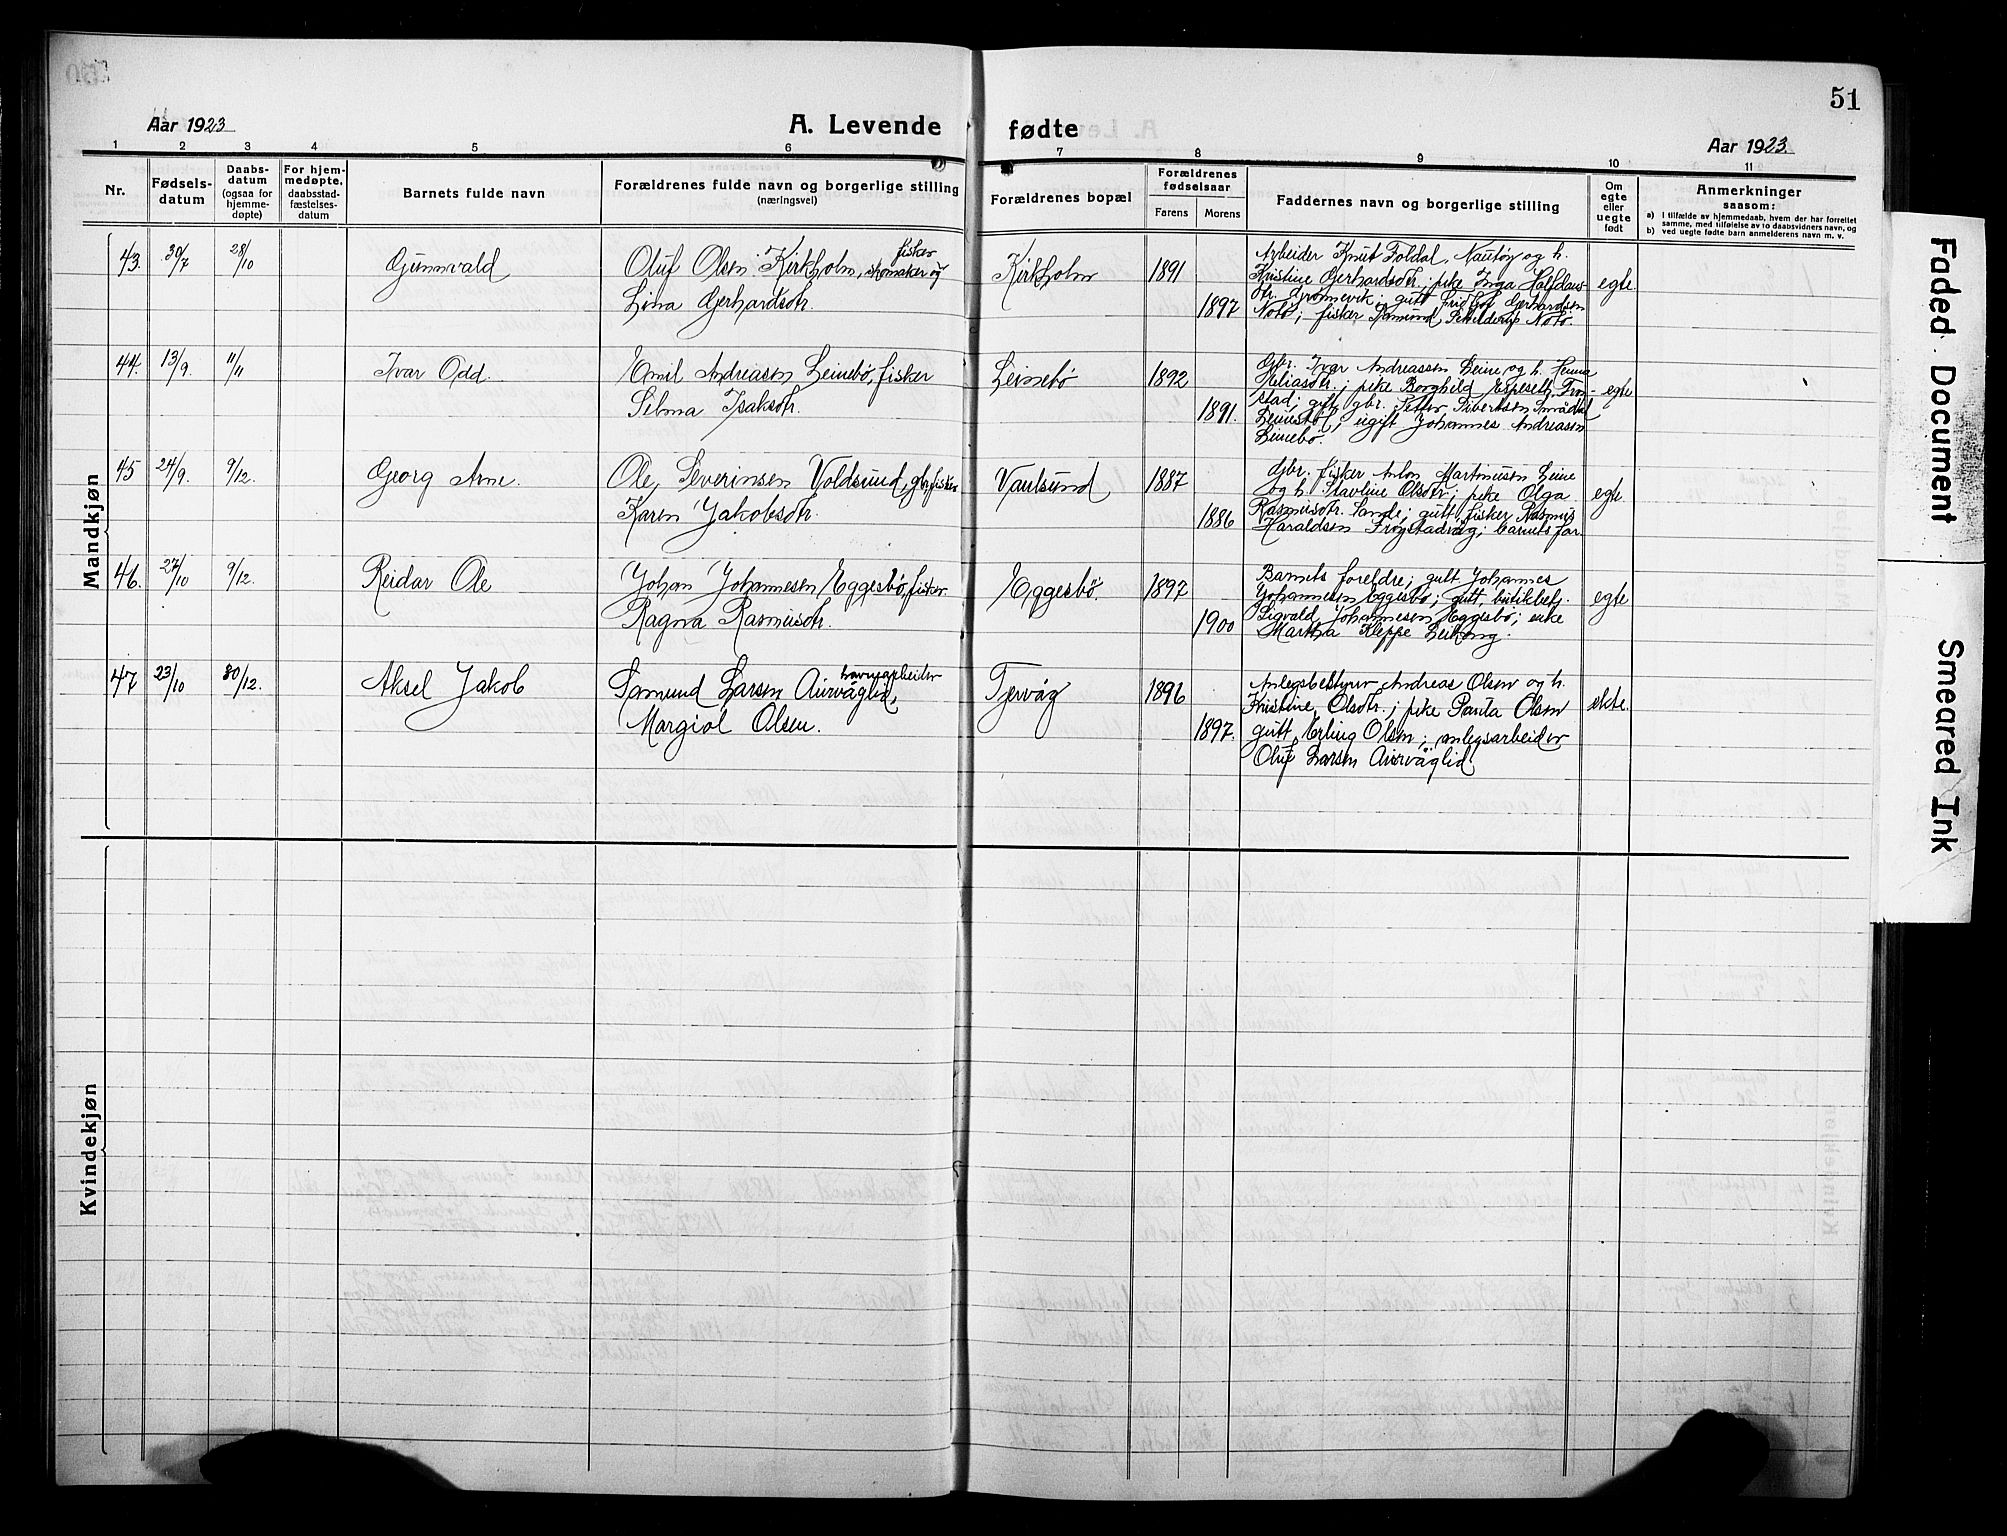 51
Aar 1923
A. Levende fødte
Aar 1923.
1 2 3 4 5 6 7 8 9 10 11
Nr.
Fødsels-
datum
Daabs-
datum
(ogsaa for
hjemme-
døpte)
For hjem-
medøpte,
daabsstad-
fæstelses-
datum
Barnets fulde navn
Forældrenes fulde navn og borgerlige stilling
(næringsvei)
Forældrenes bopæl
Forældrenes
fødselsaar
Farens Morens
Faddernes navn og borgerlige stilling
Om
egte
eller
uegte
født
Anmerkninger
saasom:
a) i tilfælde av hjemmedaab, hvem der har forrettet
samme, med tilføielse av to daabsvidners navn, og
b) ved uegte fødte barn anmelderens navn m. v.
Mandkjøn
43. 30/7 28/10 Gunnvald
fisker
Oluf Olsen Kirkholm, skomaker og
Lina Gerhardsdtr.
Kirkholm 1891
1897
Arbeider Knut Foldal, Nautøy og h.
Kristine Gerhardsdtr.; pike Inga Halfdans-
dtr. Grønnevik; gutt Fridtjof Gerhardsen
Notø; fisker Samund Notø.
egte
44. 13/9. 11/11 Ivar Odd.
Emil Andreasen Leinebø, fisker
Selma Isaksdtr.
Leinebø 1892
1891.
Gbr. Ivar Andreassen Leine og h.
Eliasdtr.; pike Borghild Espeseth, Frø-
stad; gift gbr. Petter Sivertsen
Leinebø; ugift Johannes Andreasen
Leinebø.
egte
45 24/9. 9/12. Georg Arne.
Ole Severinsen Voldsund, gbr., fisker
Karen Jakobsdtr.
Vaulsund 1887
1886
Gbr. fisker Anton Martinusen Leine
og h. Olsdtr.; pike Olga
Rasmusdtr. Sande; gutt, fisker Rasmus
Haraldsen Frøystadvåg; barnets far.
egte.
46. 27/10 9/12. Reidar Ole
Johan Johannesen Eggesbø, fisker
Ragna Rasmusdtr.
Eggesbø. 1897
1900
Barnets foreldre; gutt Johannes
Johannesen Eggesbø; gutt, butikbetj.
Sigvald Johannesen Eggesbø; enke
Martha Kleppe Leikong.
egte
47 23/10 30/12. Aksel Jakob
havnearbeider
Samund Larsen Aurvåglid,
Margiol Olsen.
Tjervåg 1896
1897.
Anlegsbestyrer Andreas Olsen og h.
Kristine Olsdtr.; pike Olsen
gutt Erling Olsen; anlegsarbeider
Oluf Larsen Aurvåglid
ekte.
Kvindekjøn
Faded Document
Smeared Ink